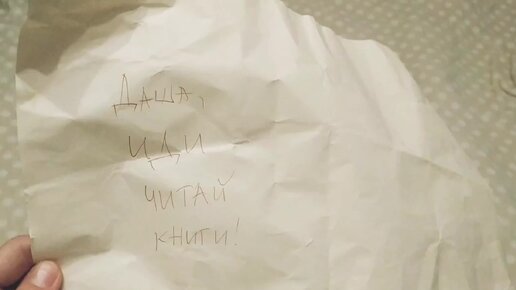 ДАША,
ИДИ
ЧИТАЙ
КНИГИ!